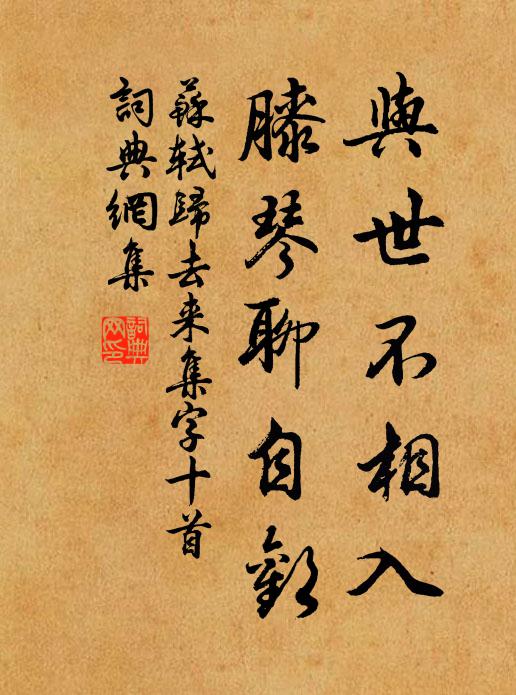 與世不相入
膝琴聊自歡
蘇軾歸去來集字十首
詞典網集
詞典
网印